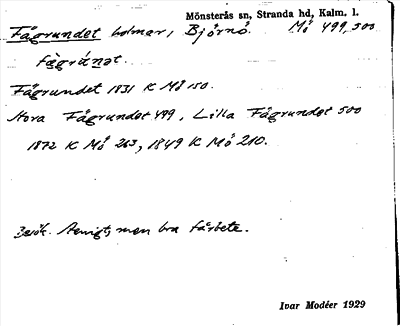 Mönsterås sn, Stranda hd, Kalm. l.
Fågrundet holmar, Björnö. Mö 499, 500
fågrúnet.
Fågrundet 1831 K Mö 150.
Stora Fågrundet 499, Lilla Fågrundet 500
1872 K Mö 263, 1849 K Mö 210.
Besök. Stenigt, men bra fårbete.
Ivar Modéer 1929